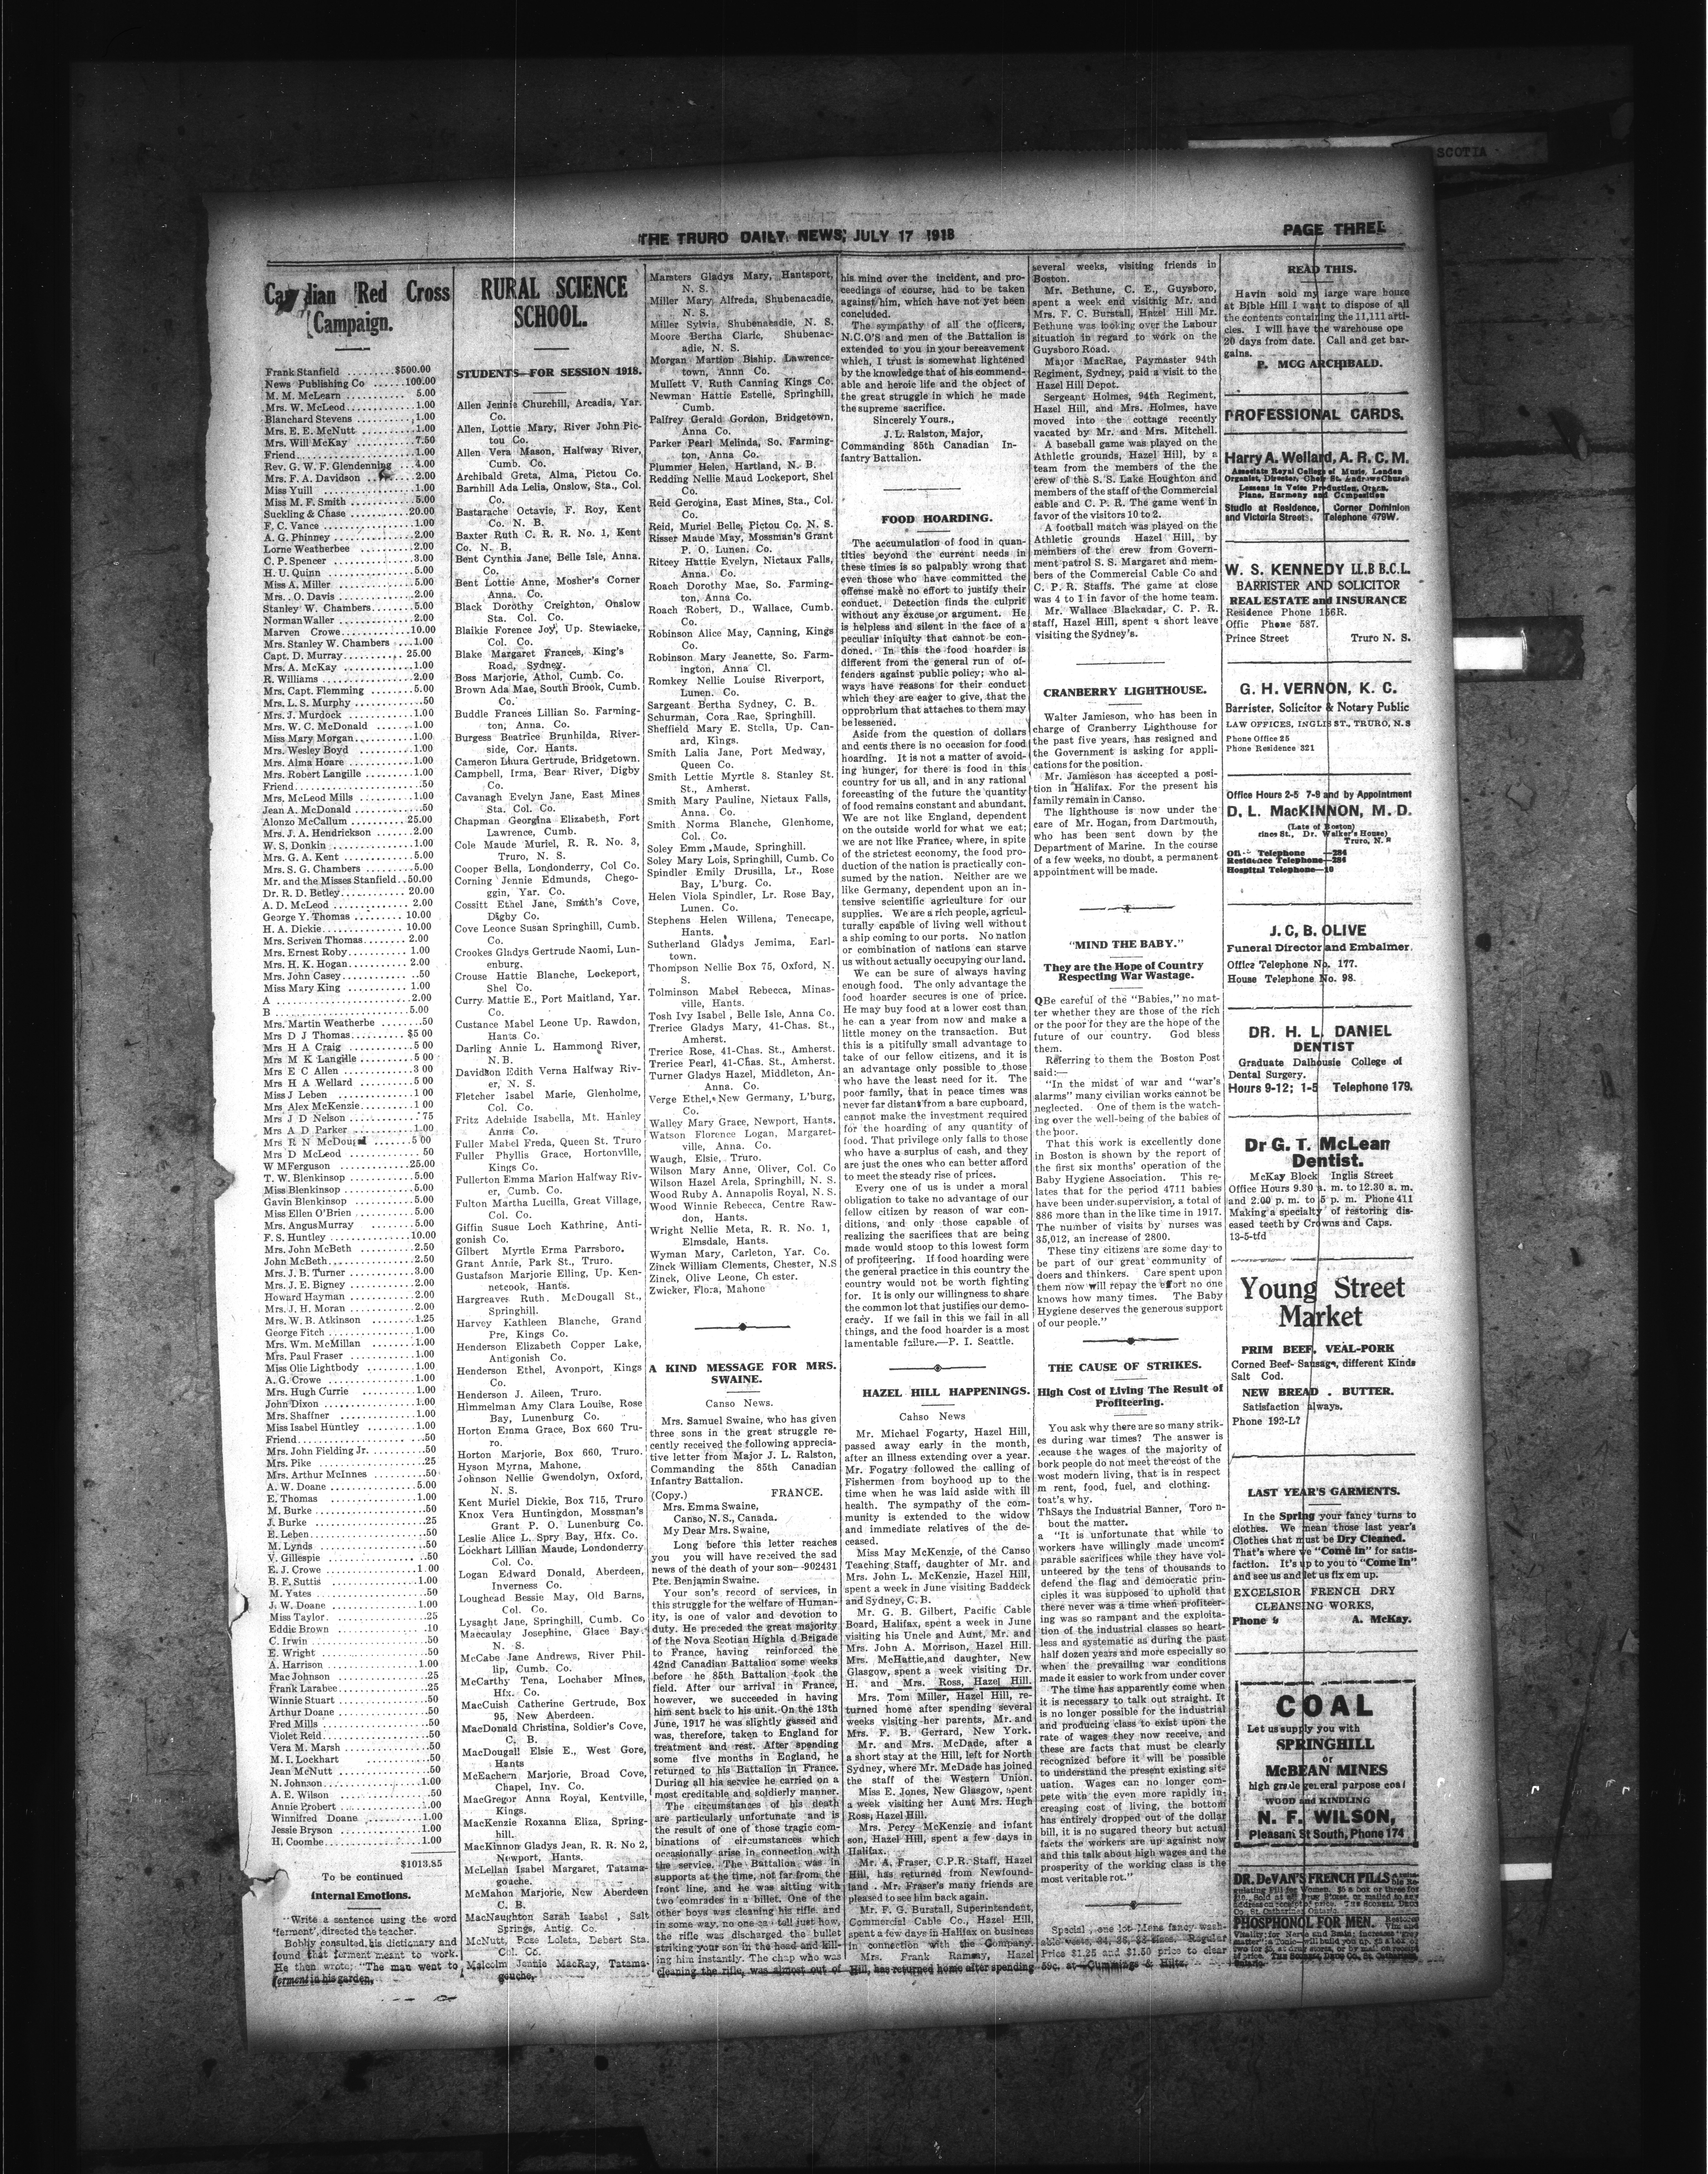 SCOTIA
THE TRURO DAILY NEWS, JULY 17 1918
PAGE THREE
Canadian Red Cross
Campaign.
Frank Stanfield .........$500.00
News Publishing Co ......100.00
M. M. McLearn........... 5.00
Mrs. W. McLeod............1.00
Blanchard Stevens ..........1.00
Mrs. E. E. McNutt..........1.00
Mrs. Will McKay ..........7.50
Friend......................1.00
Rev. G. W. F. Glendenning ..4.00
Mrs. F. A. Davidson ........2.00
Miss Yuill .................1.00
Miss M. F. Smith ..........5.00
Suckling & Chase ..........20.00
F. C. Vance ...............1.00
A. G. Phinney .............2.00
Lorne Weatherbee ..........2.00
C. P. Spencer .............3.00
H. U. Quinn ...............5.00
Miss A. Miller .............5.00
Mrs. . O. Davis ............2.00
Stanley W. Chambers.......5.00
Norman Waller .............2.00
Marven Crowe............10.00
Mrs. Stanley W. Chambers ...1.00
Capt. D. Murray.......... 25.00
Mrs. A. McKay ............1.00
R. Williams ................2.00
Mrs. Capt. Flemming .......5.00
Mrs. L. S. Murphy ..........50
Mrs. J. Murdock ...........1.00
Mrs. W. C. McDonald .......1.00
Miss Mary Morgan..........1.00
Mrs. Wesley Boyd ..........1.00
Mrs. Alma Hoare ...........1.00
Mrs. Robert Langille ........1.00
Friend.......................50
Mrs. McLeod Mills .........1.00
Jean A. McDonald ...........50
Alonzo McCallum ..........25.00
Mrs. J. A. Hendrickson ......2.00
W. S. Donkin ..............1.00
Mrs. G. A. Kent ............5.00
Mrs. S. G. Chambers ........5.00
Mr. and the Misses Stanfield..50.00
Dr. R. D. Betley............20.00
A. D. McLeod ..............2.00
George Y. Thomas ......... 10.00
H. A. Dickie.............. 10.00
Mrs. Scriven Thomas........ 2.00
Mrs. Ernest Roby........... 1.00
Mrs. H. K. Hogan.......... 2.00
Mrs. John Casey.............50
Miss Mary King ............ 1.00
A .........................2.00
B .........................5.00
Mrs. Martin Weatherbe .......50
Mrs D J Thomas...........$5 00
Mrs H A Craig .............5 00
Mrs M K Langille ..........5 00
Mrs E C Allen .............3 00
Mrs H A Wellard ...........5 00
Miss J Leben ..............1 00
Mrs Alex McKenzie.........1 00
Mrs J D Nelson ..............75
Mrs A D Parker ............1.00
Mrs R N McDougal .........5 00
Mrs D McLeod .............. 50
W M Ferguson ............25.00
T. W. Blenkinsop ...........5.00
Miss Blenkinsop ............5.00
Gavin Blenkinsop ...........5.00
Miss Ellen O'Brien ..........5.00
Mrs. Angus Murray .........5.00
F. S. Huntley ..............10.00
Mrs. John McBeth ..........2.50
John McBeth...............2.50
Mrs. J. B. Turner ...........3.00
Mrs. J. E. Bigney ...........2.00
Howard Hayman ...........2.00
Mrs. J. H. Moran ...........2.00
Mrs. W. B. Atkinson ........1.25
George Fitch ...............1.00
Mrs. Wm. McMillan ........1.00
Mrs. Paul Fraser ............1.00
Miss Olie Lightbody .........1.00
A. G. Crowe ................1.00
Mrs. Hugh Currie ..........1.00
John Dixon .................1.00
Mrs. Shaffner ..............1.00
Miss Isabel Huntley .........1.00
Friend.......................50
Mrs. John Fielding Jr. ........50
Mrs. Pike ...................25
Mrs. Arthur McInnes .........50
A. W. Doane ................5.00
E. Thomas .................1.00
M. Burke ....................50
J. Burke .....................25
E. Leben.....................50
M. Lynds ....................50
V. Gillespie ..................50
E. J. Crowe .................1.00
B. F. Suttis .................1.00
M. Yates .....................50
J. W. Doane .................1.00
Miss Taylor...................25
Eddie Brown .................10
C. Irwin .....................50
E. Wright ....................50
A. Harrison .................1.00
Mac Johnson .................25
Frank Larabee................25
Winnie Stuart ................50
Arthur Doane .................50
Fred Mills ....................50
Violet Reid....................50
Vera M. Marsh ................50
M. I. Lockhart ................50
Jean McNutt ..................50
N. Johnson..................1.00
A. E. Wilson ..................50
Annie Probert ...............1.00
Winnifred Doane ............1.00
Jessie Bryson ................1.00
H. Coombe..................1.00
$1013.85
To be continued
Internal Emotions.
"Write a sentence using the word
'ferment',' directed the teacher.
Bobby consulted his dictionary and
found that ferment meant to work.
He then wrote: "The man went to
ferment in his garden.
RURAL SCIENCE
SCHOOL.
STUDENTS—FOR SESSION 1918.
Allen Jennie Churchill, Arcadia, Yar.
Co.
Allen, Lottie Mary, River John Pic-
tou Co.
Allen Vera Mason, Halfway River,
Cumb. Co.
Archibald Greta, Alma, Pictou Co.
Barnhill Ada Lelia, Onslow, Sta., Col.
Co.
Bastarache Octavie, F. Roy, Kent
Co. N. B.
Baxter Ruth C. R. R. No. 1, Kent
Co. N. B.
Bent Cynthia Jane, Belle Isle, Anna.
Co.
Bent Lottie Anne, Mosher's Corner
Anna. Co.
Black Dorothy Creighton, Onslow
Sta. Col. Co.
Blaikie Forence Joy, Up. Stewiacke,
Col. Co.
Blake Margaret Frances, King's
Road, Sydney.
Boss Marjorie, Athol, Cumb. Co.
Brown Ada Mae, South Brook, Cumb.
Co.
Buddle Frances Lillian So. Farming-
ton, Anna. Co.
Burgess Beatrice Brunhilda, River-
side, Cor. Hants.
Cameron Lhura Gertrude, Bridgetown.
Campbell, Irma, Bear River, Digby
Co.
Cavanagh Evelyn Jane, East Mines
Sta. Col. Co.
Chapman Georgina Elizabeth, Fort
Lawrence, Cumb.
Cole Maude Muriel, R. R. No. 3,
Truro, N. S.
Cooper Bella, Londonderry, Col Co.
Corning Jennie Edmunds, Chego-
ggin, Yar. Co.
Cossitt Ethel Jane, Smith's Cove,
Digby Co.
Cove Leonce Susan Springhill, Cumb.
Co.
Crookes Gladys Gertrude Naomi, Lun-
enburg.
Crouse Hattie Blanche, Lockeport,
Shel Co.
Curry Mattie E., Port Maitland, Yar.
Co.
Custance Mabel Leone Up. Rawdon,
Hants Co.
Darling Annie L. Hammond River,
N.B.
Davidson Edith Verna Halfway Riv-
er, N. S.
Fletcher Isabel Marie, Glenholme,
Col. Co.
Fritz Adelaide Isabella, Mt. Hanley
Anna Co.
Fuller Mabel Freda, Queen St. Truro
Fuller Phyllis Grace, Hortonville,
Kings Co.
Fullerton Emma Marion Halfway Riv-
er, Cumb. Co.
Fulton Martha Lucilla, Great Village,
Col. Co.
Giffin Susue Loch Kathring, Anti-
gonish Co.
Gilbert Myrtle Erma Parrsboro.
Grant Annie, Park St., Truro.
Gustafson Marjorie Elling, Up. Ken-
netcook, Hants.
Hargreaves Ruth. McDougall St.,
Springhill.
Harvey Kathleen Blanche, Grand
Pre, Kings Co.
Henderson Elizabeth Copper Lake,
Antigonish Co.
Henderson Ethel, Avonport, Kings
Co.
Henderson J. Aileen, Truro.
Himmelman Amy Clara Louise, Rose
Bay, Lunenburg Co.
Horton Emma Grace, Box 660 Tru-
ro.
Horton Marjorie, Box 660, Truro.
Hyson Myrna, Mahone.
Johnson Nellie Gwendolyn, Oxford,
N. S.
Kent Muriel Dickie, Box 715, Truro
Knox Vera Huntingdon, Mossman's
Grant P. O. Lunenburg Co.
Leslie Alice L. Spry Bay, Hfx. Co.
Lockhart Lillian Maude, Londonderry
Col. Co.
Logan Edward Donald, Aberdeen,
Inverness Co.
Loughead Bessie May, Old Barns,
Col. Co.
Lysaght Jane, Springhill, Cumb. Co
Maccaulay Josephine, Glace Bay
N. S.
McCabe Jane Andrews, River Phil-
lip, Cumb. Co.
McCarthy Tena, Lochaber Mines,
Hfx. Co.
MacCuish Catherine Gertrude, Box
95, New Aberdeen.
MacDonald Christina, Soldier's Cove,
C. B.
MacDougall Elsie E., West Gore,
Hants
McEachern Marjorie, Broad Cove,
Chapel, Inv. Co.
MacGregor Anna Royal, Kentville,
Kings.
MacKenzie Roxanna Eliza, Spring-
hill.
MacKinnon Gladys Jean, R. R. No 2,
Newport, Hants.
McLellan Isabel Margaret, Tatama-
gouche.
McMahon Marjorie, New Aberdeen
C. B.
MacNaughton Sarah Isabel , Salt
Springs, Antig. Co.
McNutt, Rose Loleta, Debert Sta.
Col. Co.
Malcolm Jennie MacRay, Tatama-
gouche,
Marsters Gladys Mary, Hantsport,
N. S.
Miller Mary Alfreda, Shubenacadie,
N. S.
Miller Sylvia, Shubenacadie, N. S.
Moore Bertha Claric, Shubenac-
adie, N. S.
Morgan Martion Biship. Lawrence-
town, Annn Co.
Mullett V. Ruth Canning Kings Co.
Newman Hattie Estelle, Springhill,
Cumb.
Palfrey Gerald Gordon, Bridgetown,
Anna Co.
Parker Pearl Melinda, So. Farming-
ton, Anna Co.
Plummer Helen, Hartland, N. B.
Redding Nellie Maud Lockeport, Shel
Co.
Reid Gerogina, East Mines, Sta., Col.
Co.
Reid, Muriel Belle, Pictou Co. N. S.
Risser Maude May, Mossman's Grant
P. O. Lunen. Co.
Ritcey Hattie Evelyn, Nictaux Falls,
Anna. Co.
Roach Dorothy Mae, So. Farming-
ton, Anna Co.
Roach Robert, D., Wallace, Cumb.
Co.
Robinson Alice May, Canning, Kings
Co.
Robinson Mary Jeanette, So. Farm-
ington, Anna Cl.
Romkey Nellie Louise Riverport,
Lunen. Co.
Sargeant Bertha Sydney, C. B.
Schurman, Cora Rae, Springhill.
Sheffield Mary E. Stella, Up. Can-
ard, Kings.
Smith Lalia Jane, Port Medway,
Queen Co.
Smith Lettie Myrtle 8. Stanley St.
St., Amherst.
Smith Mary Pauline, Nictaux Falls,
Anna. Co.
Smith Norma Blanche, Glenhome,
Col. Co.
Soley Emm Maude, Springhill.
Soley Mary Lois, Springhill, Cumb. Co
Spindler Emily Drusilla, Lr., Rose
Bay, L'burg. Co.
Helen Viola Spindler, Lr. Rose Bay,
Lunen. Co.
Stephens Helen Willena, Tenecape,
Hants.
Sutherland Gladys Jemima, Earl-
town.
Thompson Nellie Box 75, Oxford, N.
S.
Tolminson Mabel Rebecca, Minas-
ville, Hants.
Tosh Ivy Isabel , Belle Isle, Anna Co.
Trerice Gladys Mary, 41-Chas. St.,
Amherst.
Trerice Rose, 41-Chas. St., Amherst.
Trerice Pearl, 41-Chas. St., Amherst.
Turner Gladys Hazel, Middleton, An-
Anna. Co.
Verge Ethel, New Germany, L'burg,
Co.
Walley Mary Grace, Newport, Hants.
Watson Florence Logan, Margaret-
ville, Anna. Co.
Waugh, Elsie, Truro.
Wilson Mary Anne, Oliver, Col. Co
Wilson Hazel Arela, Springhill, N. S.
Wood Ruby A. Annapolis Royal, N. S.
Wood Winnie Rebecca, Centre Raw-
don, Hants.
Wright Nellie Meta, R. R. No. 1,
Elmsdale, Hants.
Wyman Mary, Carleton, Yar. Co.
Zinck William Clements, Chester, N.S
Zinck, Olive Leone, Chester.
Zwicker, Flora, Mahone
A KIND MESSAGE FOR MRS.
SWAINE.
Canso News.
Mrs. Samuel Swaine, who has given
three sons in the great struggle re-
cently received the following apprecia-
tive letter from Major J. L. Ralston,
Commanding the 85th Canadian
Infantry Battalion.
(Copy.) FRANCE.
Mrs. Emma Swaine,
Canso, N. S., Canada.
My Dear Mrs. Swaine,
Long before this letter reaches
you you will have received the sad
news of the death of your son—902431
Pte. Benjamin Swaine.
Your son's record of services, in
this struggle for the welfare of Human-
ity, is one of valor and devotion to
duty. He preceded the great majority
of the Nova Scotian Highla d Brigade
to France, having reinforced the
42nd Canadian Battalion some weeks
before he 85th Battalion took the
field. After our arrival in France,
however, we succeeded in having
him sent back to his unit. On the 13th
June, 1917 he was slightly gassed and
was, therefore, taken to England for
treatment and rest. After spending
some five months in England, he
returned to his Battalion in France.
During all his service he carried on a
most creditable and soldierly manner.
The circumstances of his death
are particularly unfortunate and is
the result of one of those tragic com-
binations of circumstances which
occasionally arise in connection with
the service. The Battalion was in
supports at the time, not far from the
front line, and he was sitting with
two comrades in a billet. One of the
other boys was cleaning his rifle, and
in some way, no one can tell just how,
the rifle was discharged the bullet
striking your son in the head and kill-
ing him instantly. The chap who was
cleaning the rifle, was almost out of
his mind over the incident, and pro-
ceedings of course, had to be taken
against him, which have not yet been
concluded.
The sympathy of all the officers,
N.C.O'S and men of the Battalion is
extended to you in your bereavement
which, I trust is somewhat lightened
by the knowledge that of his commend-
able and heroic life and the object of
the great struggle in which he made
the supreme sacrifice.
Sincerely Yours.,
J. L. Ralston, Major,
Commanding 85th Canadian In-
fantry Battalion.
FOOD HOARDING.
The accumulation of food in quan-
tities beyond the current needs in
these times is so palpably wrong that
even those who have committed the
offense make no effort to justify their
conduct. Detection finds the culprit
without any excuse or argument. He
is helpless and silent in the face of a
peculiar iniquity that cannot be con-
doned. In this the food hoarder is
different from the general run of of-
fenders against public policy; who al-
ways have reasons for their conduct
which they are eager to give, that the
opprobrium that attaches to them may
be lessened.
Aside from the question of dollars
and cents there is no occasion for food
hoarding. It is not a matter of avoid-
ing hunger, for there is food in this
country for us all, and in any rational
forecasting of the future the quantity
of food remains constant and abundant.
We are not like England, dependent
on the outside world for what we eat;
we are not like France, where, in spite
of the strictest economy, the food pro-
duction of the nation is practically con-
sumed by the nation. Neither are we
like Germany, dependent upon an in-
tensive scientific agriculture for our
supplies. We are a rich people, agricul-
turally capable of living well without
a ship coming to our ports. No nation
or combination of nations can starve
us without actually occupying our land.
We can be sure of always having
enough food. The only advantage the
food hoarder secures is one of price.
He may buy food at a lower cost than
he can a year from now and make a
little money on the transaction. But
this is a pitifully small advantage to
take of our fellow citizens, and it is
an advantage only possible to those
who have the least need for it. The
poor family, that in peace times was
never far distant from a bare cupboard,
cannot make the investment required
for the hoarding of any quantity of
food. That privilege only falls to those
who have a surplus of cash, and they
are just the ones who can better afford
to meet the steady rise of prices.
Every one of us is under a moral
obligation to take no advantage of our
fellow citizen by reason of war con-
ditions, and only those capable of
realizing the sacrifices that are being
made would stoop to this lowest form
of profiteering. If food hoarding were
the general practice in this country the
country would not be worth fighting
for. It is only our willingness to share
the common lot that justifies our demo-
cracy. If we fail in this we fail in all
things, and the food hoarder is a most
lamentable failure.—P. I. Seattle.
HAZEL HILL HAPPENINGS.
Cahso News
Mr. Michael Fogarty, Hazel Hill,
passed away early in the month,
after an illness extending over a year.
Mr. Fogatry followed the calling of
Fishermen from boyhood up to the
time when he was laid aside with ill
health. The sympathy of the com-
munity is extended to the widow
and immediate relatives of the de-
ceased.
Miss May McKenzie, of the Canso
Teaching Staff, daughter of Mr. and
Mrs. John L. McKenzie, Hazel Hill,
spent a week in June visiting Baddeck
and Sydney, C. B.
Mr. G. B. Gilbert, Pacific Cable
Board, Halifax, spent a week in June
visiting his Uncle and Aunt, Mr. and
Mrs. John A. Morrison, Hazel Hill.
Mrs. McHattie, and daughter, New
Glasgow, spent a week visiting Dr.
H. and Mrs. Ross, Hazel Hill.
Mrs. Tom Miller, Hazel Hill, re-
turned home after spending several
weeks visiting her parents, Mr. and
Mrs. F. B. Gerrard, New York.
Mr. and Mrs. McDade, after a
short stay at the Hill, left for North
Sydney, where Mr. McDade has joined
the staff of the Western Union.
Miss E. Jones, New Glasgow, spent
a week visiting her Aunt Mrs. Hugh
Ross, Hazel Hill.
Mrs. Percy McKenzie and infant
son, Hazel Hill, spent a few days in
Halifax.
Mr. A. Fraser, C.P.R. Staff, Hazel
Hill, has returned from Newfound-
land . Mr. Fraser's many friends are
pleased to see him back again.
Mr. F. G. Burstall, Superintendent,
Commercial Cable Co., Hazel Hill,
spent a few days in Halifax on business
in connection with the Company.
Mrs. Frank Ramsay, Hazel
Hill, has returned home after spending
several weeks, visiting friends in
Boston.
Mr. Bethune, C. E., Guysboro,
spent a week end visitnig Mr. and
Mrs. F. C. Burstall, Hazel Hill Mr.
Bethune was looking over the Labour
situation in regard to work on the
Guysboro Road.
Major MacRae, Paymaster 94th
Regiment, Sydney, paid a visit to the
Hazel Hill Depot.
Sergeant Holmes, 94th Regiment,
Hazel Hill, and Mrs. Holmes, have
moved into the cottage recently
vacated by Mr. and Mrs. Mitchell.
A baseball game was played on the
Athletic grounds, Hazel Hill, by a
team from the members of the the
crew of the S.'S. Lake Houghton and
members of the staff of the Commercial
cable and C. P. R. The game went in
favor of the visitors 10 to 2.
A football match was played on the
Athletic grounds Hazel Hill, by
members of the crew from Govern-
ment patrol S. S. Margaret and mem-
bers of the Commercial Cable Co and
C. P. R. Staffs. The game at close
was 4 to 1 in favor of the home team.
Mr. Wallace Blackadar, C. P. R.
staff, Hazel Hill, spent a short leave
visiting the Sydney's.
CRANBERRY LIGHTHOUSE.
Walter Jamieson, who has been in
charge of Cranberry Lighthouse for
the past five years, has resigned and
the Government is asking for appli-
cations for the position.
Mr. Jamieson has accepted a posi-
tion in Halifax. For the present his
family remain in Canso.
The lighthouse is now under the
care of Mr. Hogan, from Dartmouth,
who has been sent down by the
Department of Marine. In the course
of a few weeks, no doubt, a permanent
appointment will be made.
"MIND THE BABY."
They are the Hope of Country
Respecting War Wastage.
QBe careful of the "Babies," no mat-
ter whether they are those of the rich
or the poor for they are the hope of the
future of our country. God bless
them.
Referring to them the Boston Post
said:—
"In the midst of war and "war's
alarms" many civilian works cannot be
neglected. One of them is the watch-
ing over the well-being of the babies of
the poor.
That this work is excellently done
in Boston is shown by the report of
the first six months' operation of the
Baby Hygiene Association. This re-
lates that for the period 4711 babies
have been under supervision, a total of
886 more than in the like time in 1917.
The number of visits by nurses was
35,012, an increase of 2800.
These tiny citizens are some day to
be part of our great community of
doers and thinkers. Care spent upon
them now will repay the effort no one
knows how many times. The Baby
Hygiene deserves the generous support
of our people."
THE CAUSE OF STRIKES.
High Cost of Living The Result of
Profiteering.
You ask why there are so many strik-
es during war times? The answer is
.ecause the wages of the majority of
bork people do not meet the cost of the
wost modern living, that is in respect
m rent, food, fuel, and clothing.
toat's why.
ThSays the Industrial Banner, Toro n-
bout the matter.
a "It is unfortunate that while to
workers have willingly made uncom-
parable sacrifices while they have vol-
unteered by the tens of thousands to
defend the flag and democratic prin-
ciples it was supposed to uphold that
there never was a time when profiteer-
ing was so rampant and the exploita-
tion of the industrial classes so heart-
less and systematic as during the past
half dozen years and more especially so
when the prevailing war conditions
made it easier to work from under cover
The time has apparently come when
it is necessary to talk out straight. It
is no longer possible for the industrial
and producing class to exist upon the
rate of wages they now receive, and
these are facts that must be clearly
recognized before it will be possible
to understand the present existing sit-
uation. Wages can no longer com-
pete with the even more rapidly in-
creasing cost of living, the bottom
has entirely dropped out of the dollar
bill, it is no sugared theory but actual
facts the workers are up against now
and this talk about high wages and the
prosperity of the working class is the
most veritable rot."
Special , one lot Mens fancy wash-
able vests, $4, $6, $8 sizes. Regular
Price $1.25 and $1.50 price to clear
59c. at—Cummings & Hiltz.
READ THIS.
Havin sold my large ware house
at Bible Hill I want to dispose of all
the contents containing the 11,111 arti-
cles. I will have the warehouse ope
20 days from date. Call and get bar-
gains.
P. MCG ARCHIBALD.
PROFESSIONAL CARDS.
Harry A. Wellard, A. R. C. M.
Associate Royal College of Music, London
Organist, Director, Choir St. Andrews Church
Lessons in Voice Production, Organ,
Piano, Harmony and Composition
Studio at Residence, Corner Dominion
and Victoria Streets. Telephone 479W.
W. S. KENNEDY LL.B B.C.L.
BARRISTER AND SOLICITOR
REAL ESTATE and INSURANCE
Residence Phone 156R.
Offic Phone 587.
Prince Street Truro N. S.
G. H. VERNON, K. C.
Barrister, Solicitor & Notary Public
LAW OFFICES, INGLIS ST., TRURO, N.S
Phone Office 25
Phone Residence 321
Office Hours 2-5 7-9 and by Appointment
D. L. MacKINNON, M. D.
(Late of Boston)
rince St., Dr. Walker's House)
Truro, N. S
Off-- Telephone —284
Residence Telephone—284
Hospital Telephone—10
J. C. B. OLIVE
Funeral Director and Embalmer.
Office Telephone No. 177.
House Telephone No. 98.
DR. H. L. DANIEL
DENTIST
Graduate Dalhousie College of
Dental Surgery.
Hours 9-12; 1-5 Telephone 179.
Dr G. T. McLean
Dentist.
McKay Block Inglis Street
Office Hours 9.30 a. m. to 12.30 a. m.
and 2.00 p. m. to 5 p. m. Phone 411
Making a specialty of restoring dis-
eased teeth by Crowns and Caps.
13-5-tfd
Young Street
Market
PRIM BEEF, VEAL-PORK
Corned Beef- Sausage, different Kinds
Salt Cod.
NEW BREAD . BUTTER.
Satisfaction always.
Phone 192-L?
LAST YEAR'S GARMENTS.
In the Spring your fancy turns to
clothes. We mean those last year's
Clothes that must be Dry Cleaned.
That's where we "Come In" for satis-
faction. It's up to you to "Come In"
and see us and let us fix em up.
EXCELSIOR FRENCH DRY
CLEANSING WORKS,
Phone A. McKay.
COAL
Let us supply you with
SPRINGHILL
or
McBEAN MINES
high grade general purpose coal
WOOD and KINDLING
N. F. WILSON,
Pleasant St South, Phone 174
DR. DeVAN'S FRENCH PILLS
PHOSPHONOL FOR MEN.